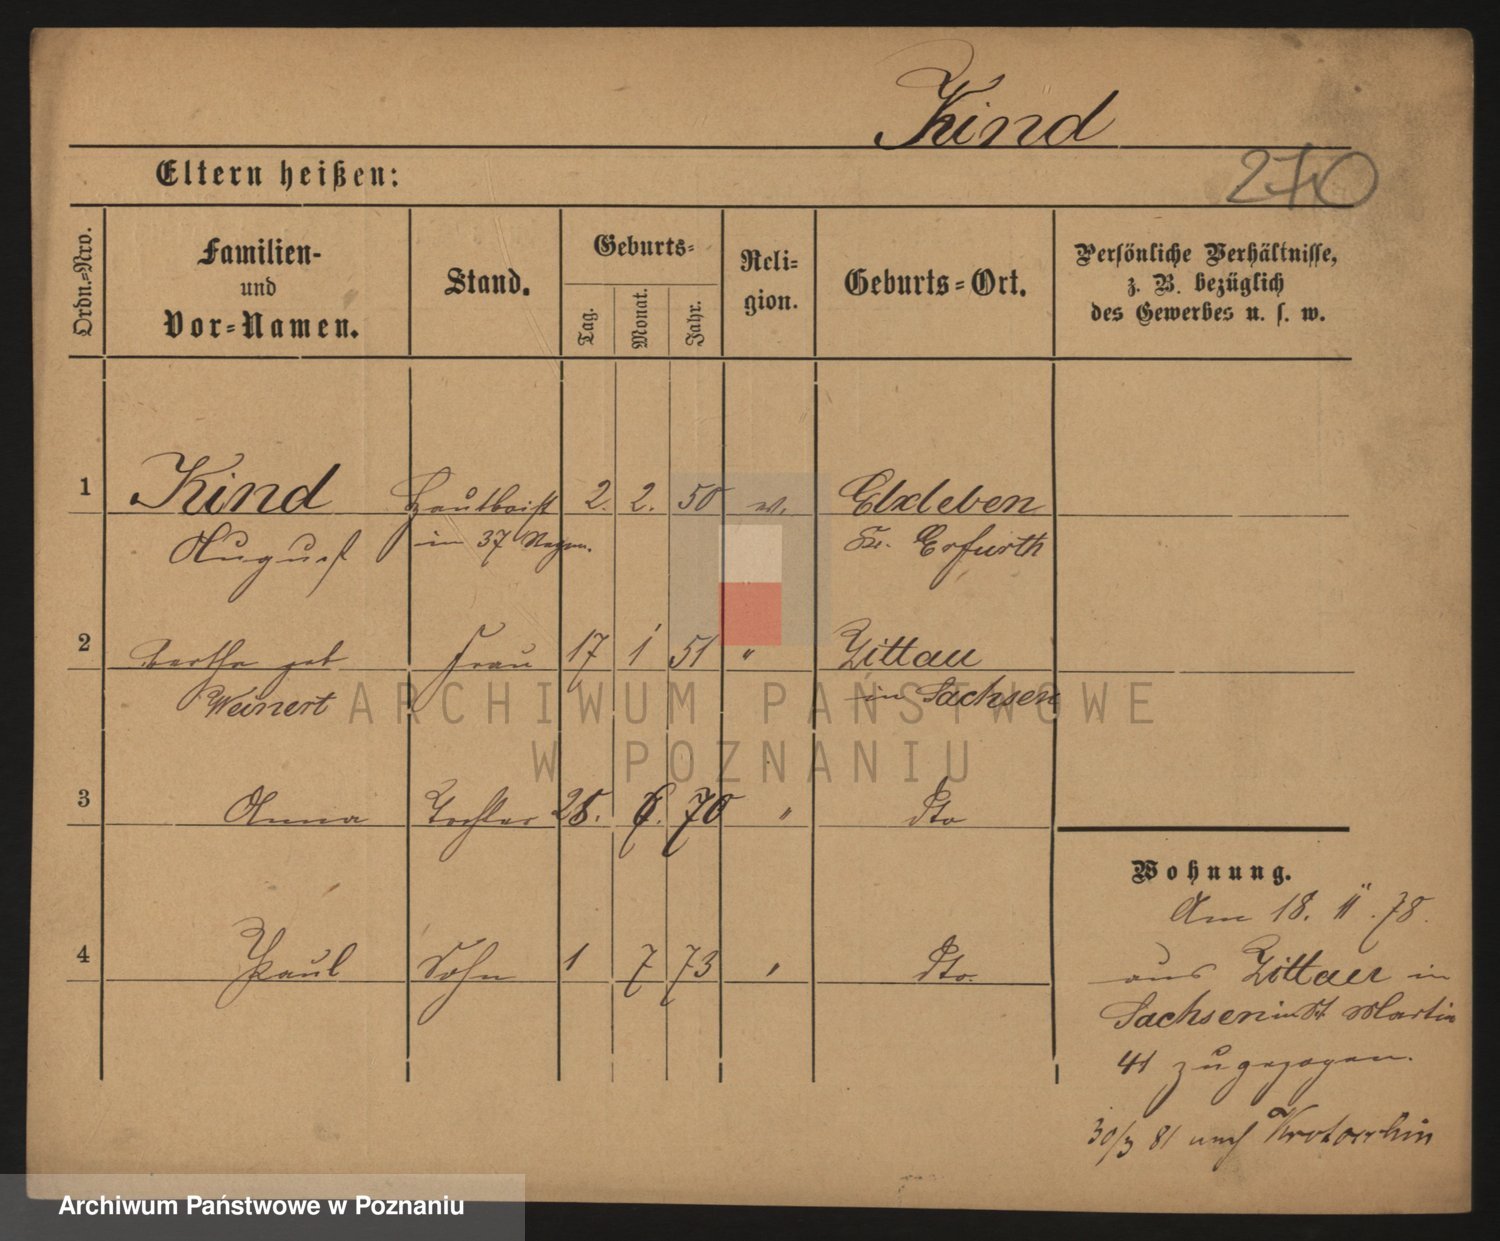 Kind
270
Eltern heißen:
Ordn.-Nro.
Familien- und Vor-Namen.
Stand.
Geburts-
Tag.
Monat.
Jahr.
Religion.
Geburts-Ort.
Persönliche Verhältnisse,
z. B. bezüglich
des Gewerbes u. s. w.
1 Kind Hautboist 2. 2. 50 ev. Elxleben
August im 37 Regm. Kr. Erfurth
2 Bertha geb Frau 17 1 51 " Zittau
Weinert in Sachsen
3 Anna Tochter 25. 6. 70 " dto
4 Paul Sohn 1 7 73 " dto.
Wohnung.
Am 18. 11. 78.
aus Zittau in
Sachsen in St Martin
41 zugezogen.
30/3 81 nach Krotoschin
ARCHIWUM PAŃSTWOWE
W POZNANIU
Archiwum Państwowe w Poznaniu